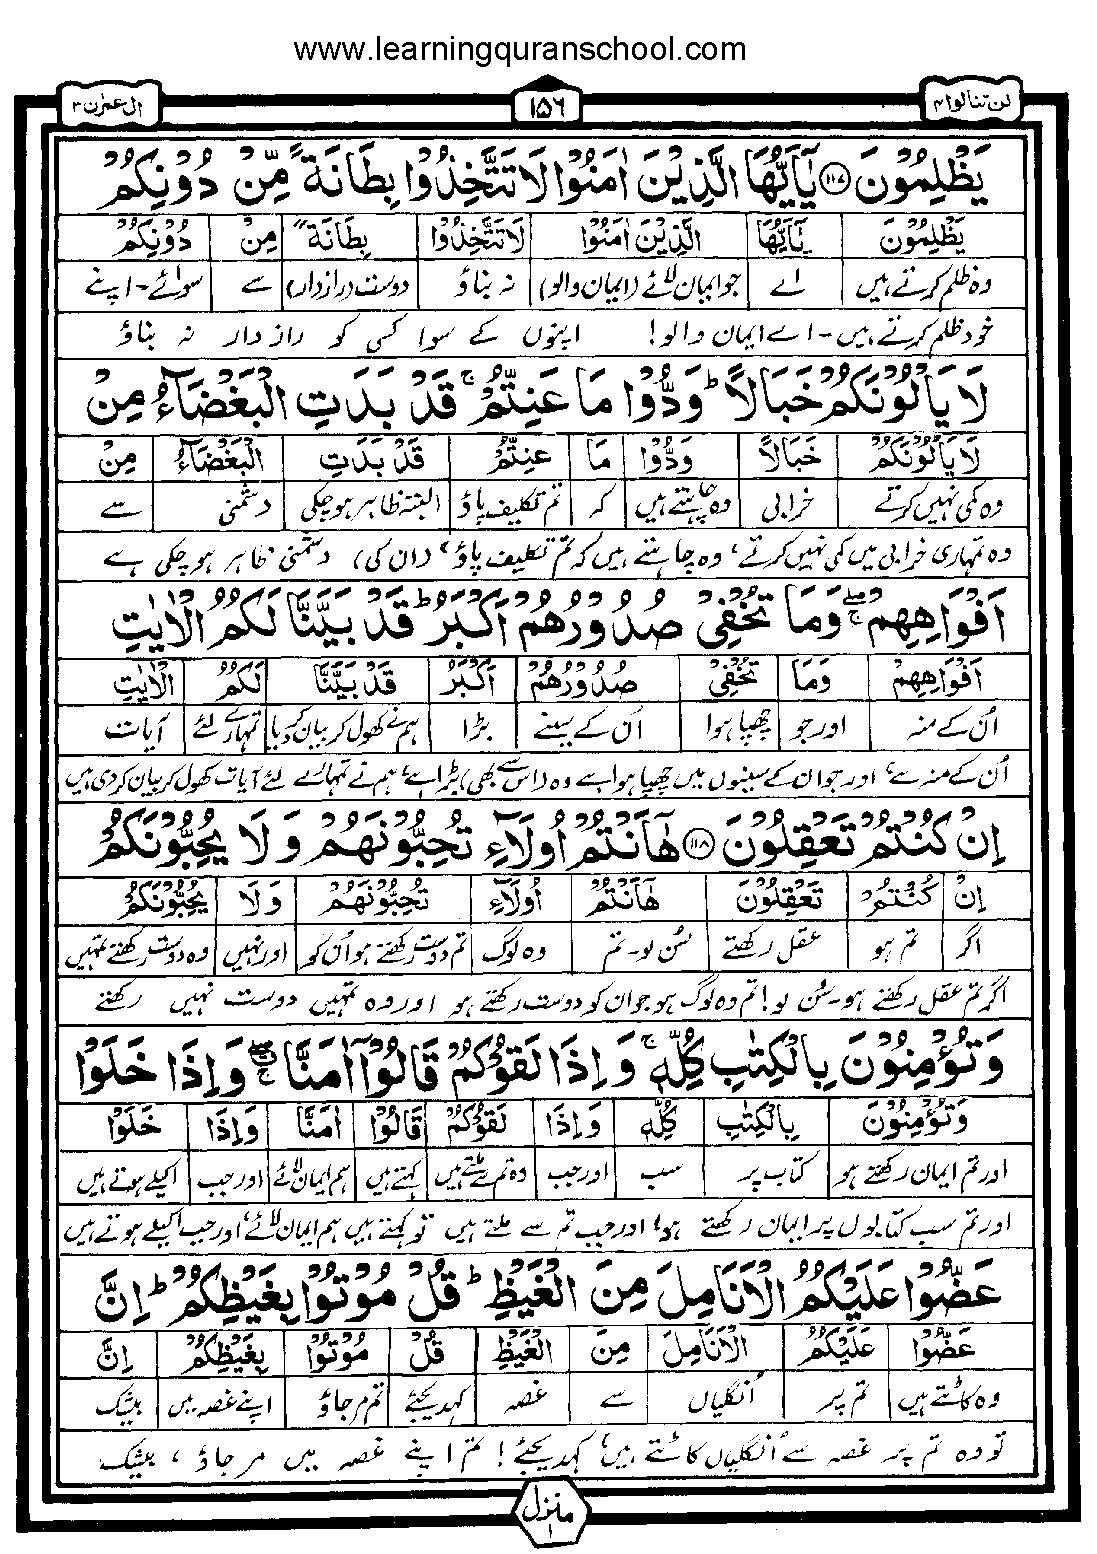 www.learningquranschool.com
لن تنالوا ۴ ۱۵۶ ال عمرٰن ۳
يَظْلِمُوْنَ ۝۱۱۷ يٰۤاَيُّهَا الَّذِيْنَ اٰمَنُوْا لَا تَتَّخِذُوْا بِطَانَةً مِّنْ دُوْنِكُمْ
يَظْلِمُوْنَ يٰۤاَيُّهَا الَّذِيْنَ اٰمَنُوْا لَا تَتَّخِذُوْا بِطَانَةً مِنْ دُوْنِكُمْ
وہ ظلم کرتے ہیں اے جو ایمان لائے (ایمان والو) نہ بناؤ دوست (رازدار) سے سوائے - اپنے
خود ظلم کرتے ہیں - اے ایمان والو! اپنوں کے سوا کسی کو رازدار نہ بناؤ
لَا يَاْلُوْنَكُمْ خَبَالًا ؕ وَدُّوْا مَا عَنِتُّمْ ۚ قَدْ بَدَتِ الْبَغْضَآءُ مِنْ
لَا يَاْلُوْنَكُمْ خَبَالًا وَدُّوْا مَا عَنِتُّمْ قَدْ بَدَتِ الْبَغْضَآءُ مِنْ
وہ کمی نہیں کرتے خرابی وہ چاہتے ہیں کہ تم تکلیف پاؤ البتہ ظاہر ہوچکی دشمنی سے
وہ تمہاری خرابی میں کمی نہیں کرتے، وہ چاہتے ہیں کہ تم تکلیف پاؤ، (ان کی) دشمنی ظاہر ہوچکی ہے
اَفْوَاهِهِمْ ۖۚ وَمَا تُخْفِيْ صُدُوْرُهُمْ اَكْبَرُ ؕ قَدْ بَيَّنَّا لَكُمُ الْاٰيٰتِ
اَفْوَاهِهِمْ وَمَا تُخْفِيْ صُدُوْرُهُمْ اَكْبَرُ قَدْ بَيَّنَّا لَكُمُ الْاٰيٰتِ
اُن کے منہ اور جو چھپا ہوا اُن کے سینے بڑا ہم نے کھول کر بیان کردیا تمہارے لئے آیات
اُن کے منہ سے، اور جو ان کے سینوں میں چھپا ہوا ہے وہ (اس سے بھی) بڑا ہے، ہم نے تمہارے لئے آیات کھول کر بیان کردی ہیں
اِنْ كُنْتُمْ تَعْقِلُوْنَ ۝۱۱۸ هٰۤاَنْتُمْ اُولَآءِ تُحِبُّوْنَهُمْ وَلَا يُحِبُّوْنَكُمْ
اِنْ كُنْتُمْ تَعْقِلُوْنَ هٰۤاَنْتُمْ اُولَآءِ تُحِبُّوْنَهُمْ وَلَا يُحِبُّوْنَكُمْ
اگر تم ہو عقل رکھتے سُن لو - تم وہ لوگ تم دوست رکھتے ہو اُن کو اور نہیں وہ دوست رکھتے تمہیں
اگر تم عقل رکھتے ہو - سُن لو! تم وہ لوگ ہو جو ان کو دوست رکھتے ہو اور وہ تمہیں دوست نہیں رکھتے
وَتُؤْمِنُوْنَ بِالْكِتٰبِ كُلِّهٖ ۚ وَاِذَا لَقُوْكُمْ قَالُوْۤا اٰمَنَّا ۖۚ وَاِذَا خَلَوْا
وَتُؤْمِنُوْنَ بِالْكِتٰبِ كُلِّهٖ وَاِذَا لَقُوْكُمْ قَالُوْا اٰمَنَّا وَاِذَا خَلَوْا
اور تم ایمان رکھتے ہو کتاب پر سب اور جب وہ تم سے ملتے ہیں کہتے ہیں ہم ایمان لائے اور جب اکیلے ہوتے ہیں
اور تم سب کتابوں پر ایمان رکھتے ہو، اور جب تم سے ملتے ہیں تو کہتے ہیں ہم ایمان لائے، اور جب اکیلے ہوتے ہیں
عَضُّوْا عَلَيْكُمُ الْاَنَامِلَ مِنَ الْغَيْظِ ؕ قُلْ مُوْتُوْا بِغَيْظِكُمْ ؕ اِنَّ
عَضُّوْا عَلَيْكُمُ الْاَنَامِلَ مِنَ الْغَيْظِ قُلْ مُوْتُوْا بِغَيْظِكُمْ اِنَّ
وہ کاٹتے ہیں تم پر اُنگلیاں سے غصہ کہدیجئے تم مرجاؤ اپنے غصہ میں بیشک
تو وہ تم پر غصہ سے اُنگلیاں کاٹتے ہیں، کہدیجئے! تم اپنے غصہ میں مرجاؤ، بیشک
منزل ۱